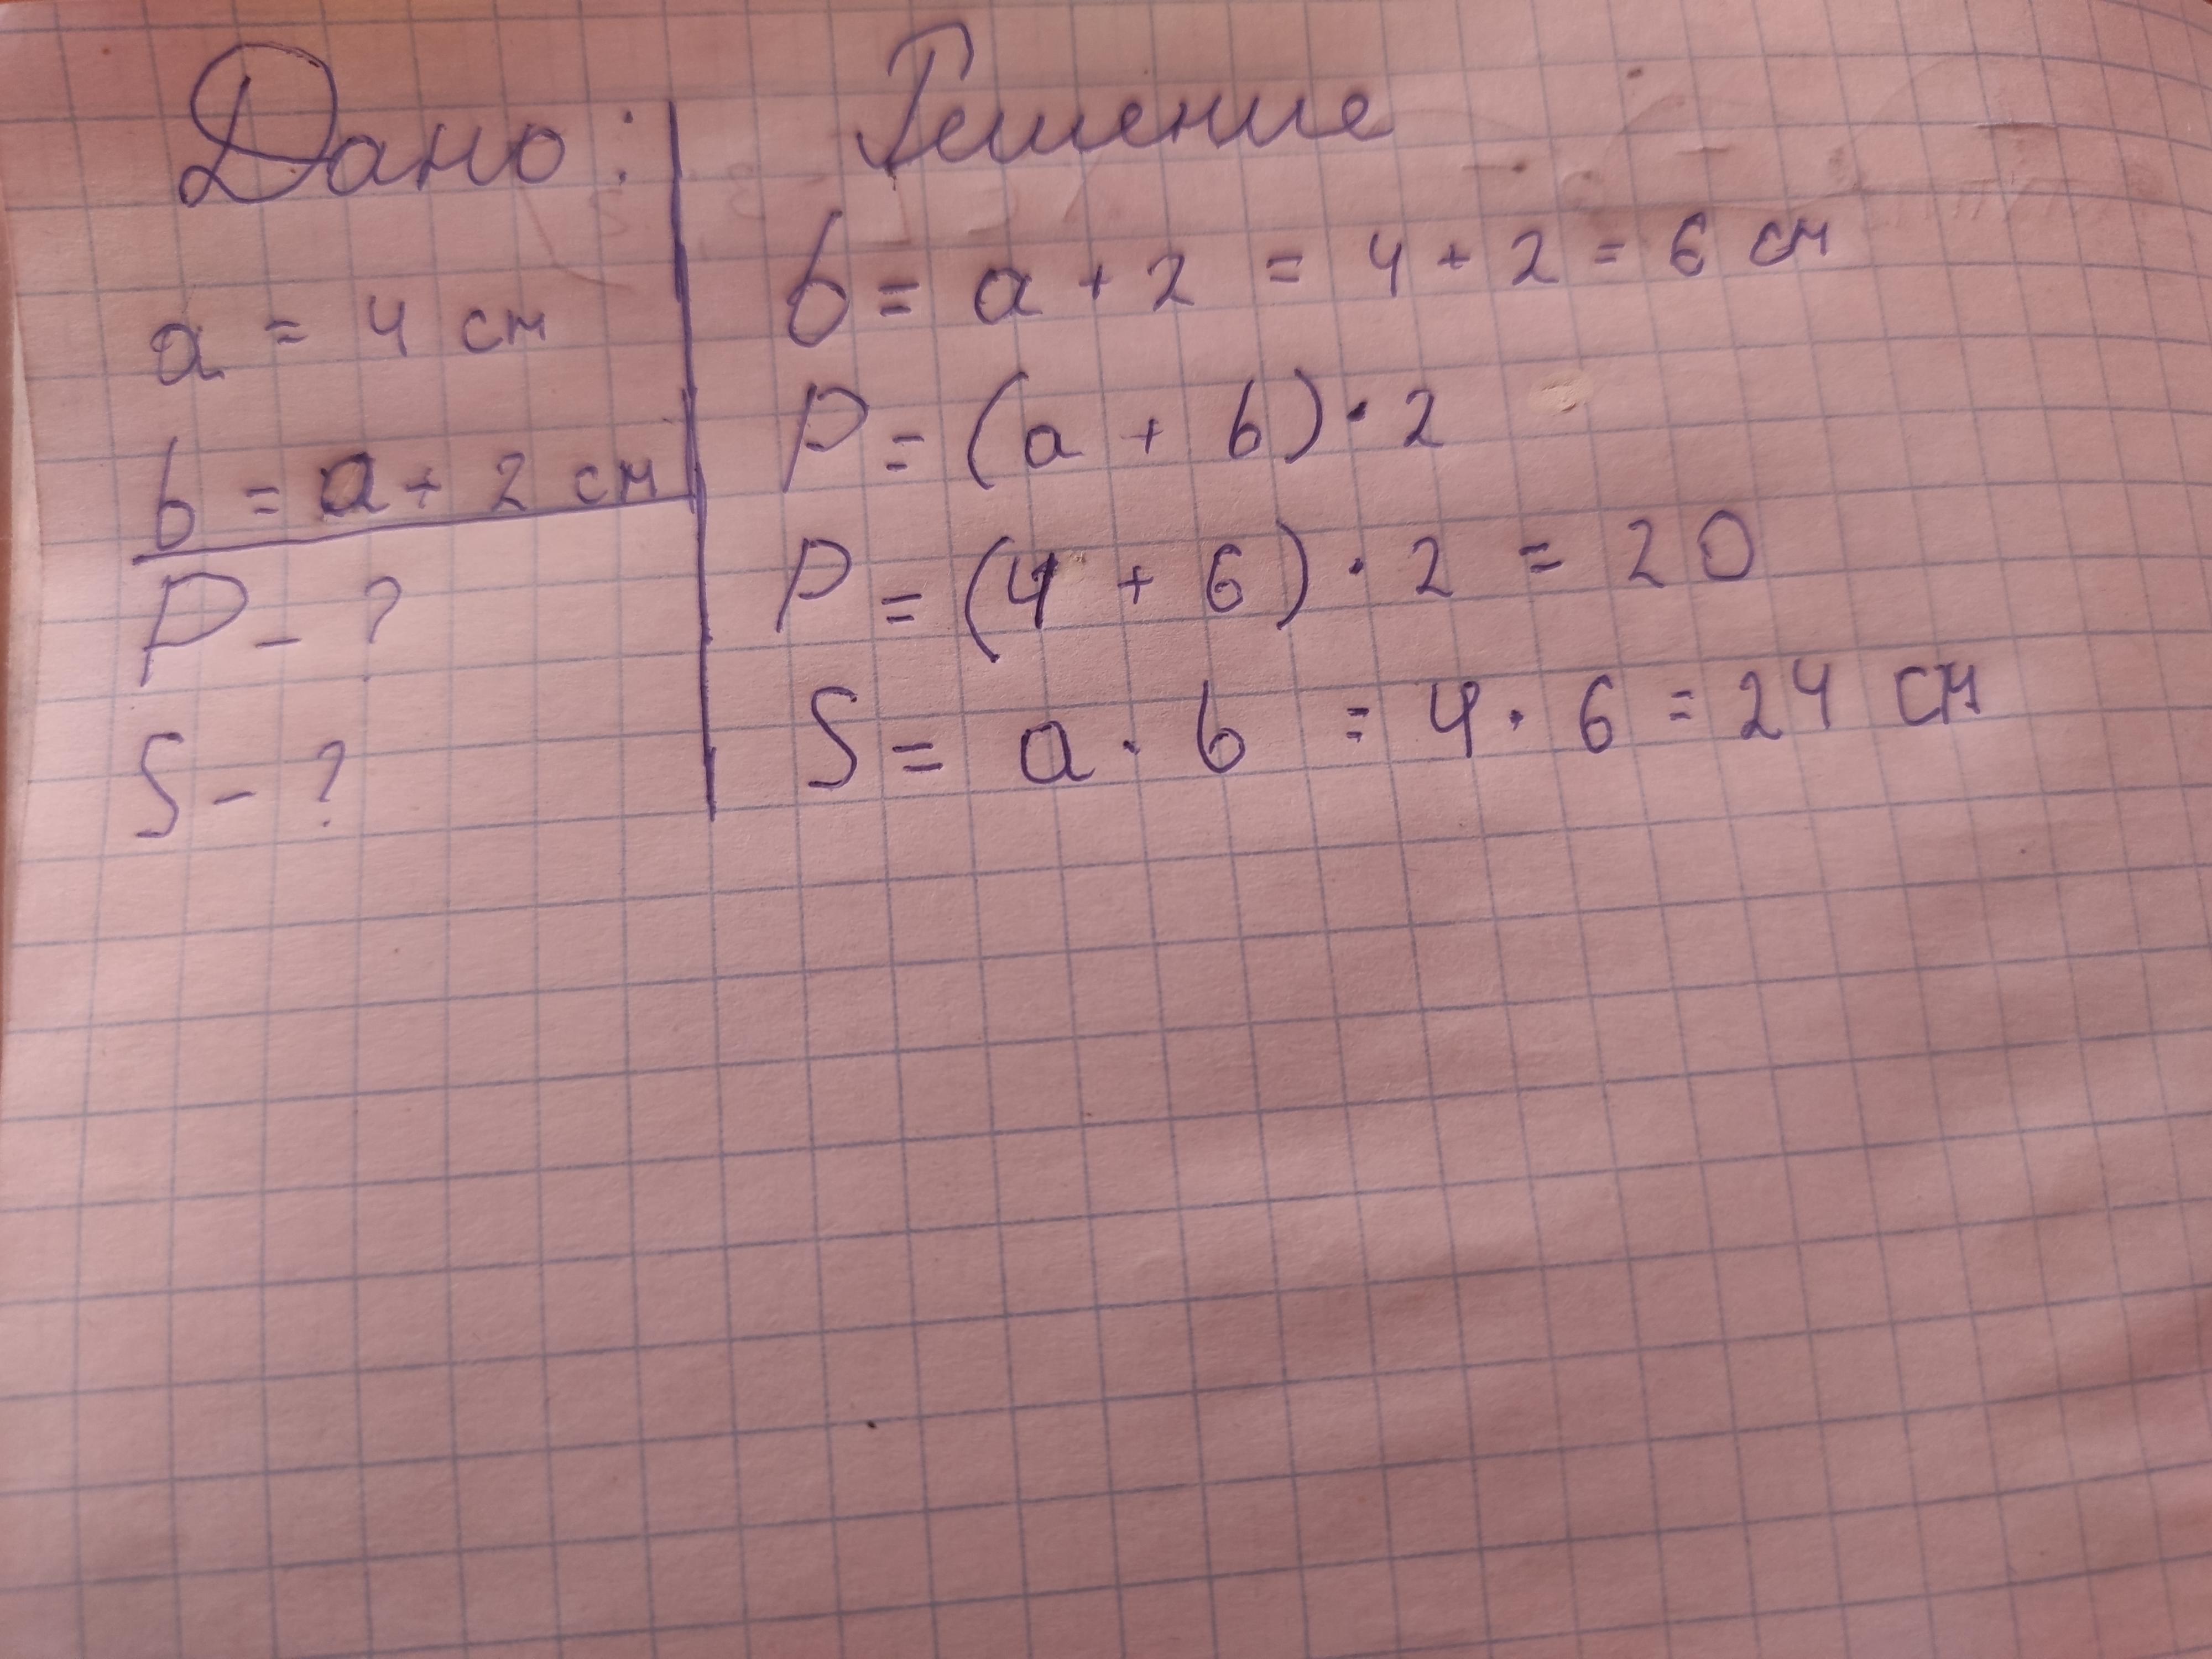 Дано:
a = 4 см
b = a + 2 см
P - ?
S - ?
Решение
b = a + 2 = 4 + 2 = 6 см
P = (a + b) · 2
P = (4 + 6) · 2 = 20
S = a · b = 4 · 6 = 24 см